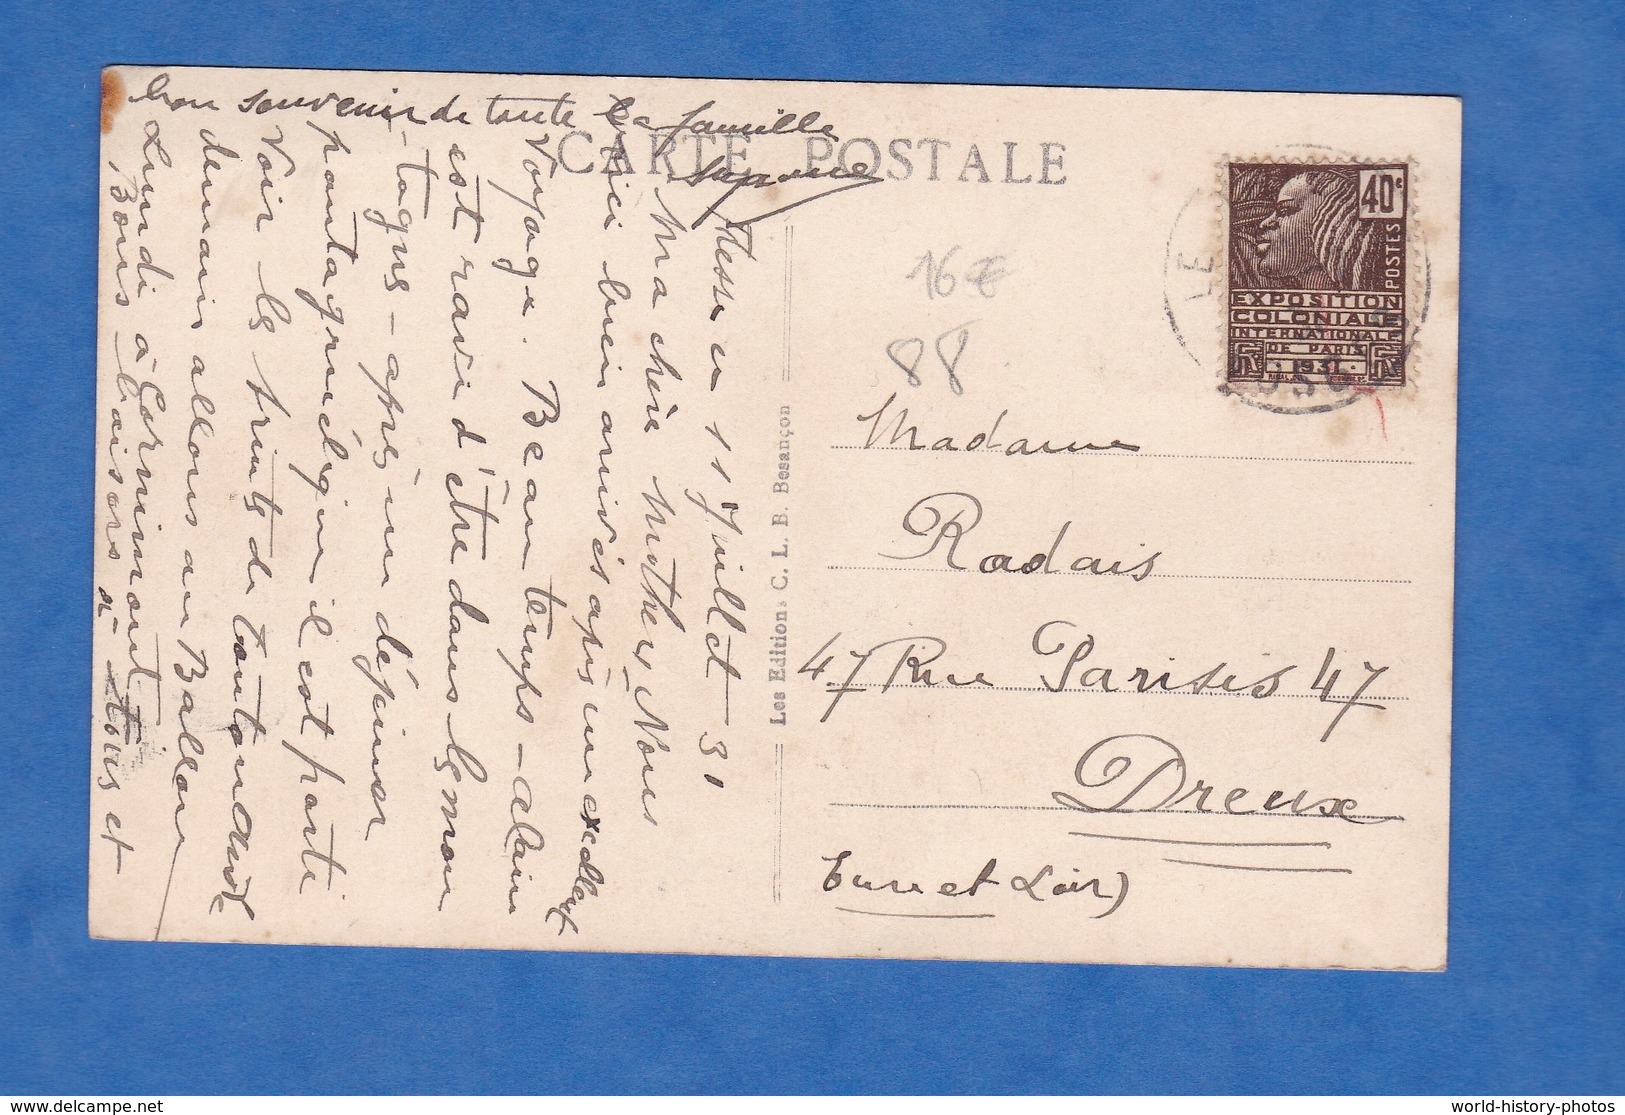 bon souvenir de toute la famille
Suzanne
CARTE POSTALE
11 Juillet 31
Ma chère Mother, Nous
voici bien arrivés après un excellent
voyage. Beau temps – alain
est ravi d'être dans les mon
-tagnes – après un déjeuner
pantagruélique il est parti
voir les truites de
demain allons au Ballon
Lundi à Cornimont
Bons baisers à tous et
Les Editions C. L. B. Besançon
16€
88
LE
40c
POSTES
EXPOSITION
COLONIALE
INTERNATIONALE
DE PARIS
1931
Madame
Radais
47 Rue Parisis 47
Dreux
(Eure et Loir)
world-history-photos